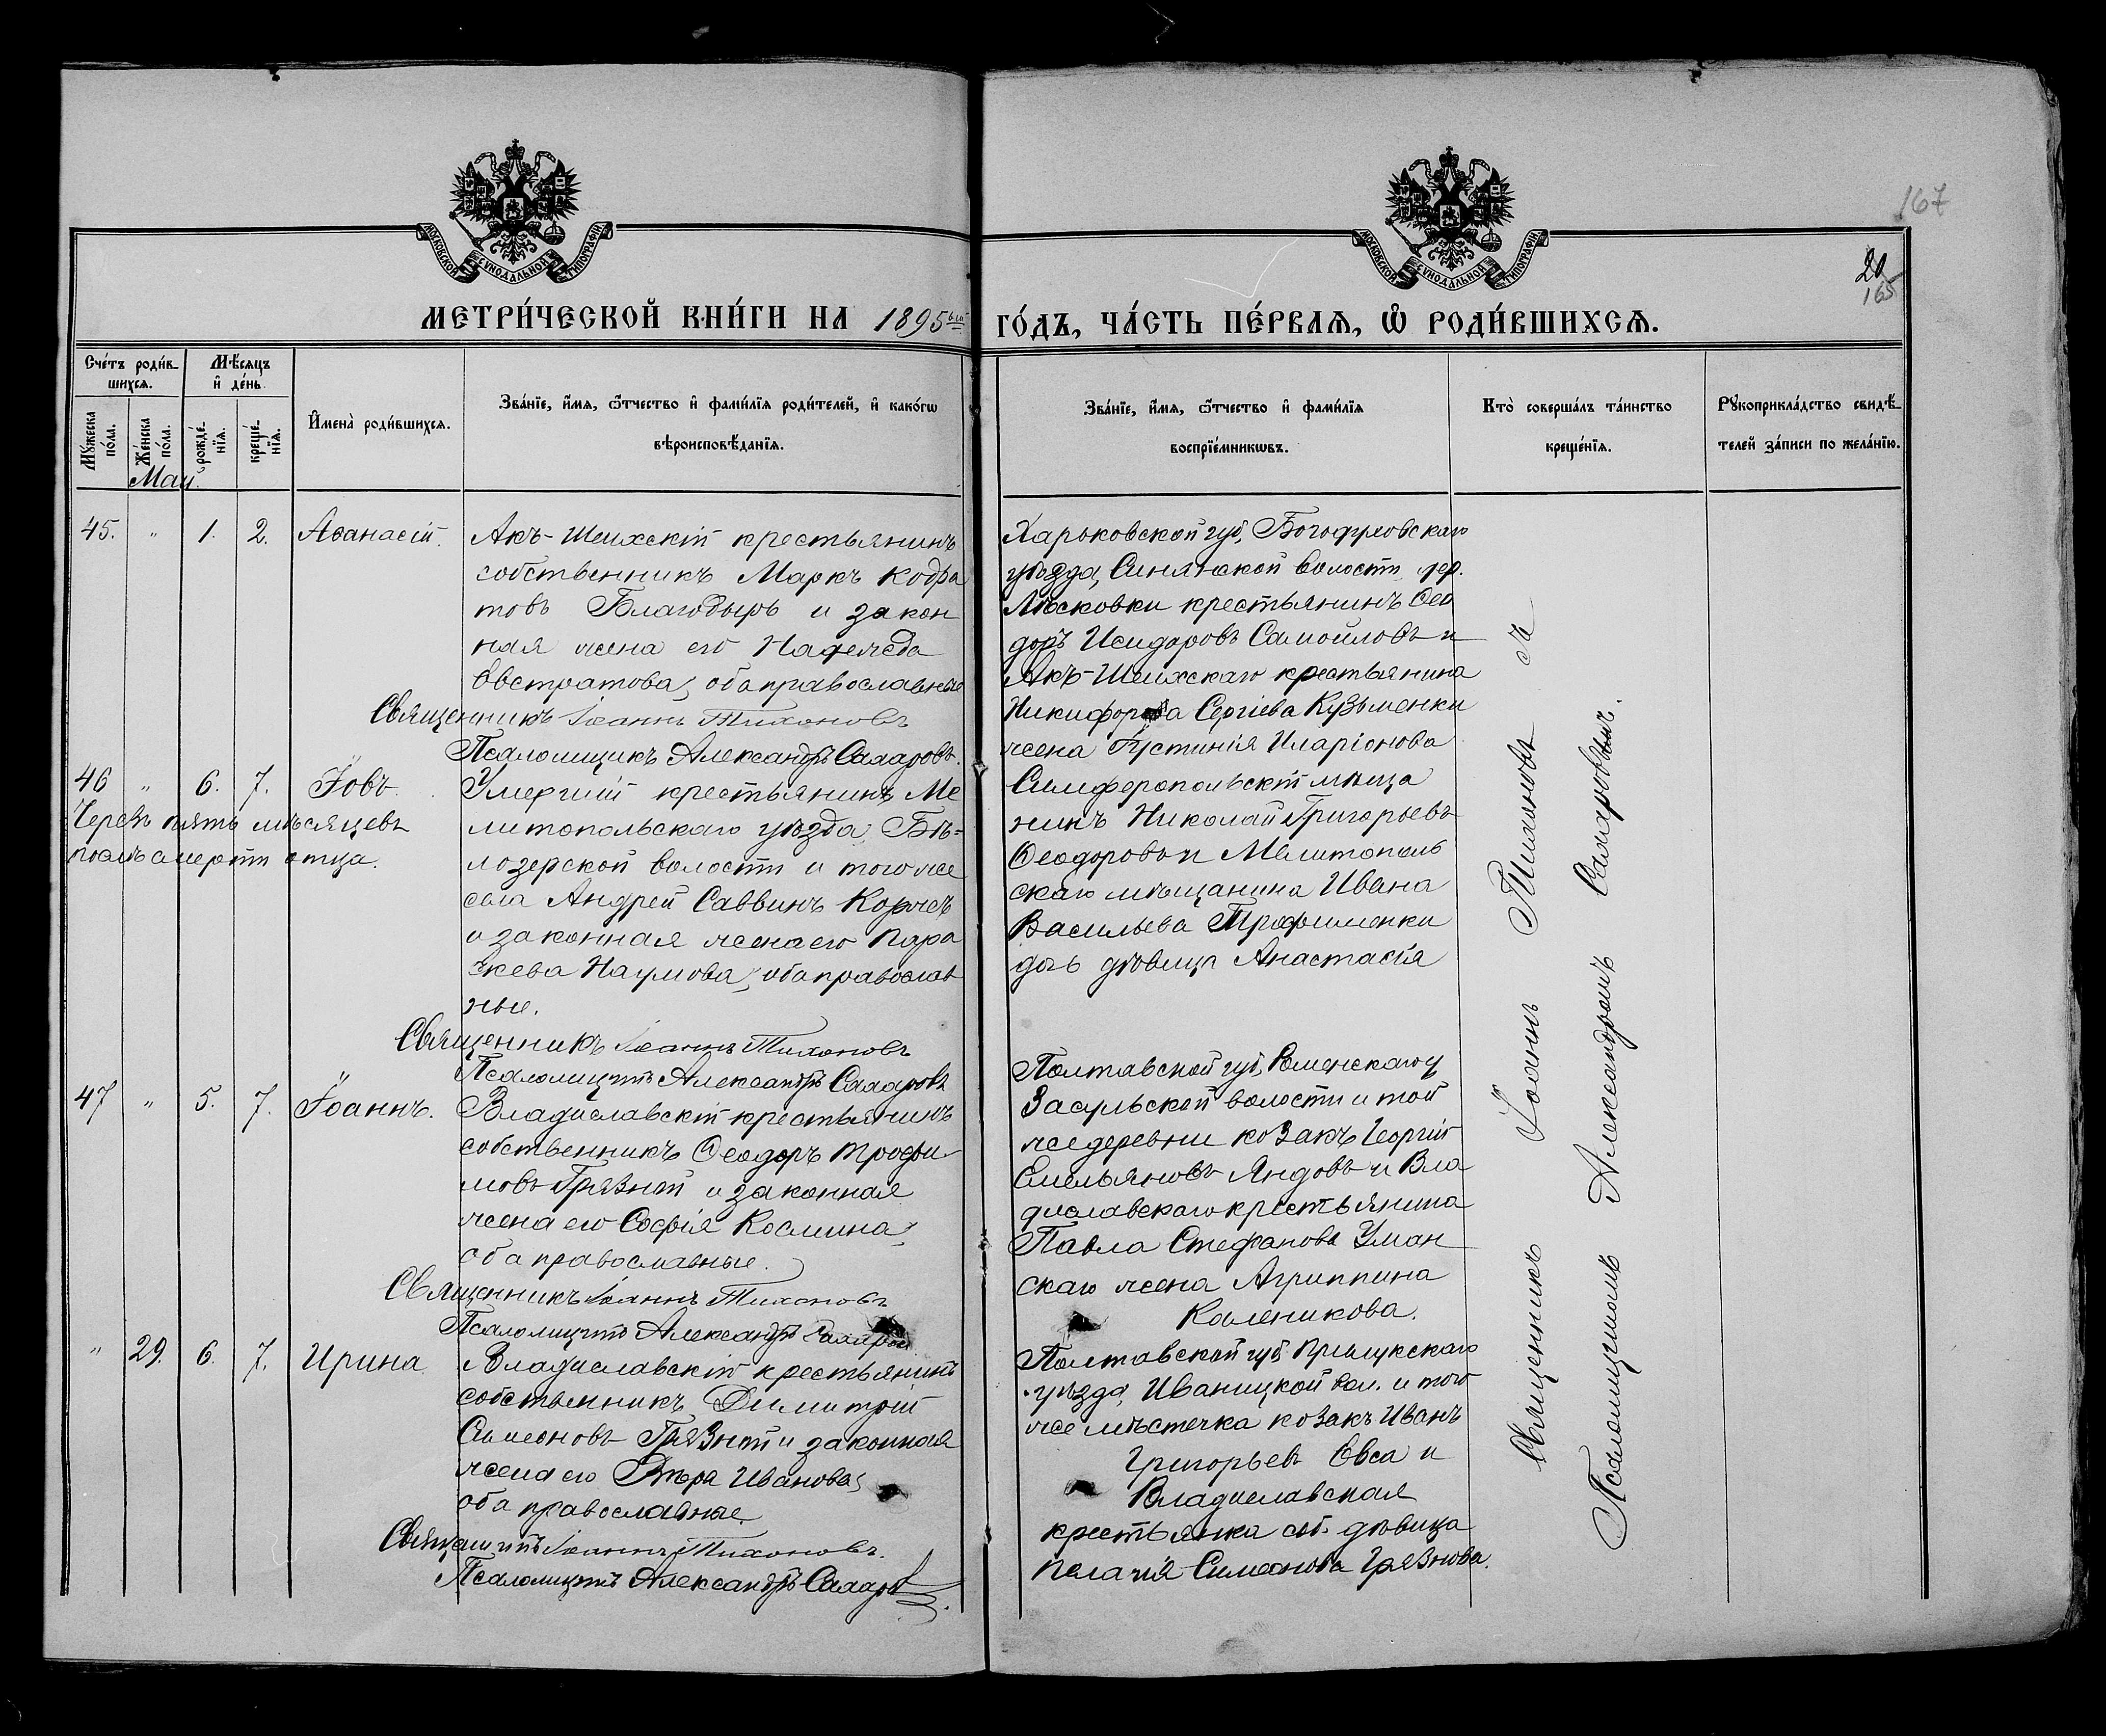 167
20
165
МОСКОВСКОЙ СѴНОДАЛЬНОЙ ТИПОГРАФІИ
МОСКОВСКОЙ СѴНОДАЛЬНОЙ ТИПОГРАФІИ
МЕТРИ́ЧЕСКОЙ КНИ́ГИ НА 1895ый
ГО́ДЪ, ЧА́СТЬ ПЕ́РВАѦ, Ѽ РОДИ́ВШИХСѦ.
Сче́тъ роди́в-
шихсѧ.
Мѣ́сѧцъ
и҆ де́нь
Мꙋ́жеска
по́ла.
Же́нска
по́ла.
рожде́-
нїѧ.
креще́-
нїѧ.
И҆мена̀ роди́вшихсѧ.
Зва́нїе, и҆́мѧ, ѻ҆́тчество и҆ фами́лїѧ роди́телей, и҆ како́гѡ
вѣроисповѣ́данїѧ.
Зва́нїе, и҆́мѧ, ѻ҆́тчество и҆ фами́лїѧ
воспрїе́мникѡвъ.
Кто̀ соверша́лъ та́инство
креще́нїѧ.
Рꙋкоприкла́дство свидѣ́-
телей за́писи по жела́нїю.
Май.
45. " 1. 2. Аѳанасій.
Акъ-Шеихскій крестьянинъ
собственникъ Маркъ Кодра
товъ Благодыръ и закон
ная жена его Надежда
Евстратова, оба православные
Священникъ Іоаннъ Тихоновъ
Псаломщикъ Александръ Сахаровъ.
Харьковской губ. Богодуховскаго
уѣзда, Синянской волости, дер.
Лѣсковки крестьянинъ Ѳео
доръ Исидоровъ Самойловъ и
Акъ-Шеихскаго крестьянина
Никифора Сергіева Кузьменки
жена Іустинія Иларіонова
46 " 6. 7. Іовъ.
Черезъ пять мѣсяцевъ
послѣ смерти отца.
Умершій крестьянинъ Ме
литопольскаго уѣзда, Бѣ-
лозерской волости и того же
села Андрей Саввинъ Коржъ
и законная жена его Пара
скева Наумова, оба православ
ные.
Священникъ Іоаннъ Тихоновъ
Псаломщикъ Александръ Сахаровъ
Симферопольскій мѣща
нинъ Николай Григорьевъ
Ѳеодоровъ и Мелитополь
скаго мѣщанина Ивана
Васильева Трофименки
дочь дѣвица Анастасія
47 " 5. 7. Іоаннъ.
Владиславскій крестьянинъ
собственникъ Ѳеодоръ Трофи-
мовъ Грязной и законная
жена его Софія Космина,
оба православные.
Священникъ Іоаннъ Тихоновъ
Псаломщикъ Александръ Сахаровъ
Полтавской губ. Роменскаго у
Засульской волости и той
же деревни козакъ Георгій
Емельяновъ Яндовъ и Вла
диславскаго крестьянина
Павла Стефанова Уман
скаго жена Агриппина
Каленикова.
" 29. 6. 7. Ирина
Владиславскій крестьянинъ
собственникъ Димитрій
Симеоновъ Грязной и законная
жена его Вѣра Иванова,
оба православные.
Священникъ Іоаннъ Тихоновъ.
Псаломщикъ Александръ Сахаровъ
Полтавской губ. Прилукскаго
уѣзда, Иваницкой вол. и того
же мѣстечка козакъ Иванъ
Григорьевъ Евса и
Владиславская
крестьянка соб. дѣвица
Пелагія Симеонова Грязнова.
Священникъ Іоаннъ Тихоновъ съ
Псаломщикомъ Александромъ Сахаровымъ.